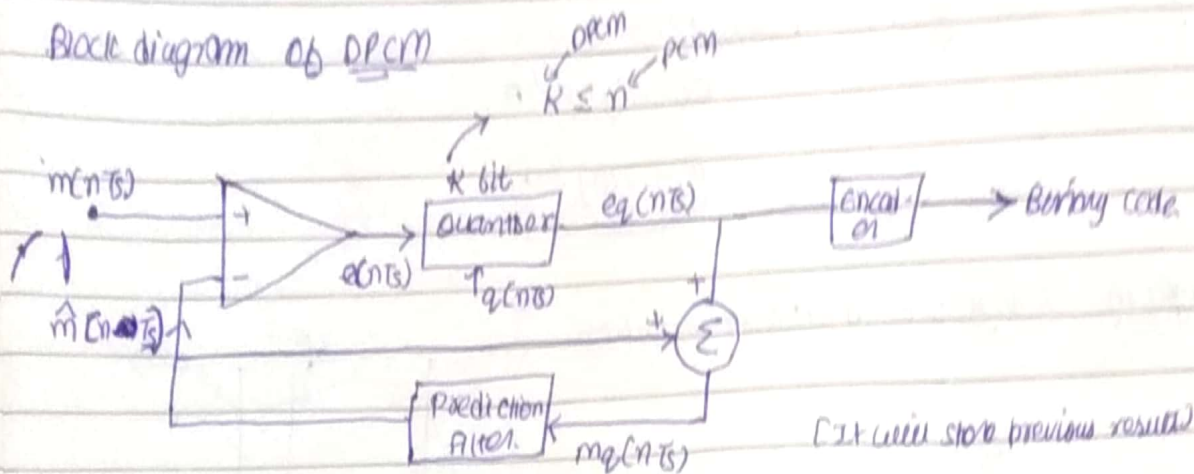 Block diagram of DPCM
DPCM
PCM
K ≤ n
m(nTs)
K bit
Quantiser
eq(nTs)
Encod
er
Binary code
+
-
e(nTs)
q(nTs)
m̂(nTs)
+
+
Σ
Prediction
filter.
mq(nTs)
(It will store previous result)